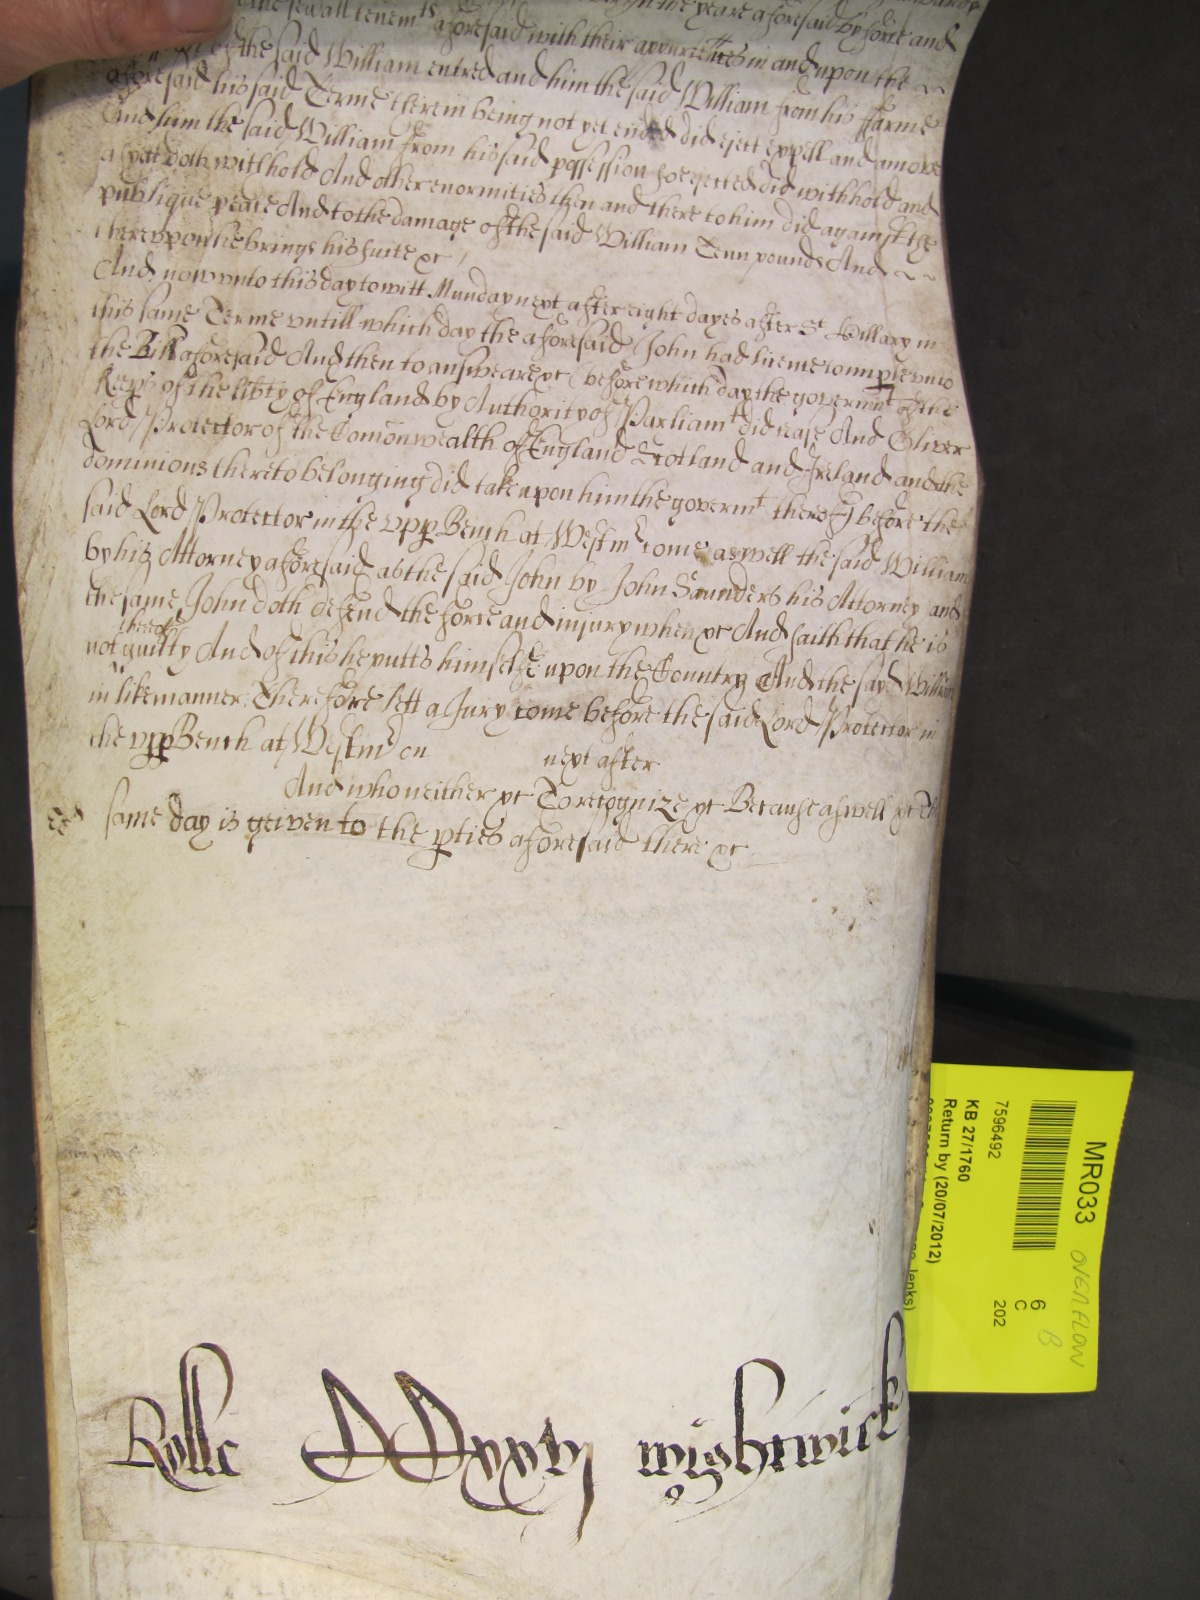 severall tenemts aforesaid with their appurtences in and upon the
of the said William entred and him the said William from his Farme
aforesaid his said Terme therein being not yet ended did eject expell and amove
And him the said William from his said possession soe ejected did withhold and
as yett doth withhold And other enormities then and there to him did against the
publique peace And to the damage of the said William Tenn pounds And
thereuppon he brings his suite &c
And now unto this day to witt Munday next after eight dayes after St Hillary in
this same Terme untill which day the aforesaid John had licence to imple unto
the Bill aforesaid And then to answeare &c (before which day the govermt of the
Keeps of the libty of England by Authority of Parliamt did cease And Oliver
Lord Protector of the Comonwealth of England Scotland and Ireland and the
dominions thereto belonging did take upon him the govermt thereof) before the
said Lord Protector in the upp Bench at Westmr come aswell the said William
by his Attorney aforesaid as the said John by John Saunders his Attorney and
the same John doth defend the force and injury when &c And saith that he is
not guilty thereof And of this he putts himselfe upon the Country And the said William
in like manner Therefore lett a Jury come before the said Lord Protector in
the upp Bench at Westmr on next after
And who neither &c To recognize &c Because aswell &c The
same day is geiven to the pties aforesaid there &c
Rolle xxvj wightwick
MR033
OVERFLOW
6
B
C
202
7596492
KB 27/1760
Return by (20/07/2012)